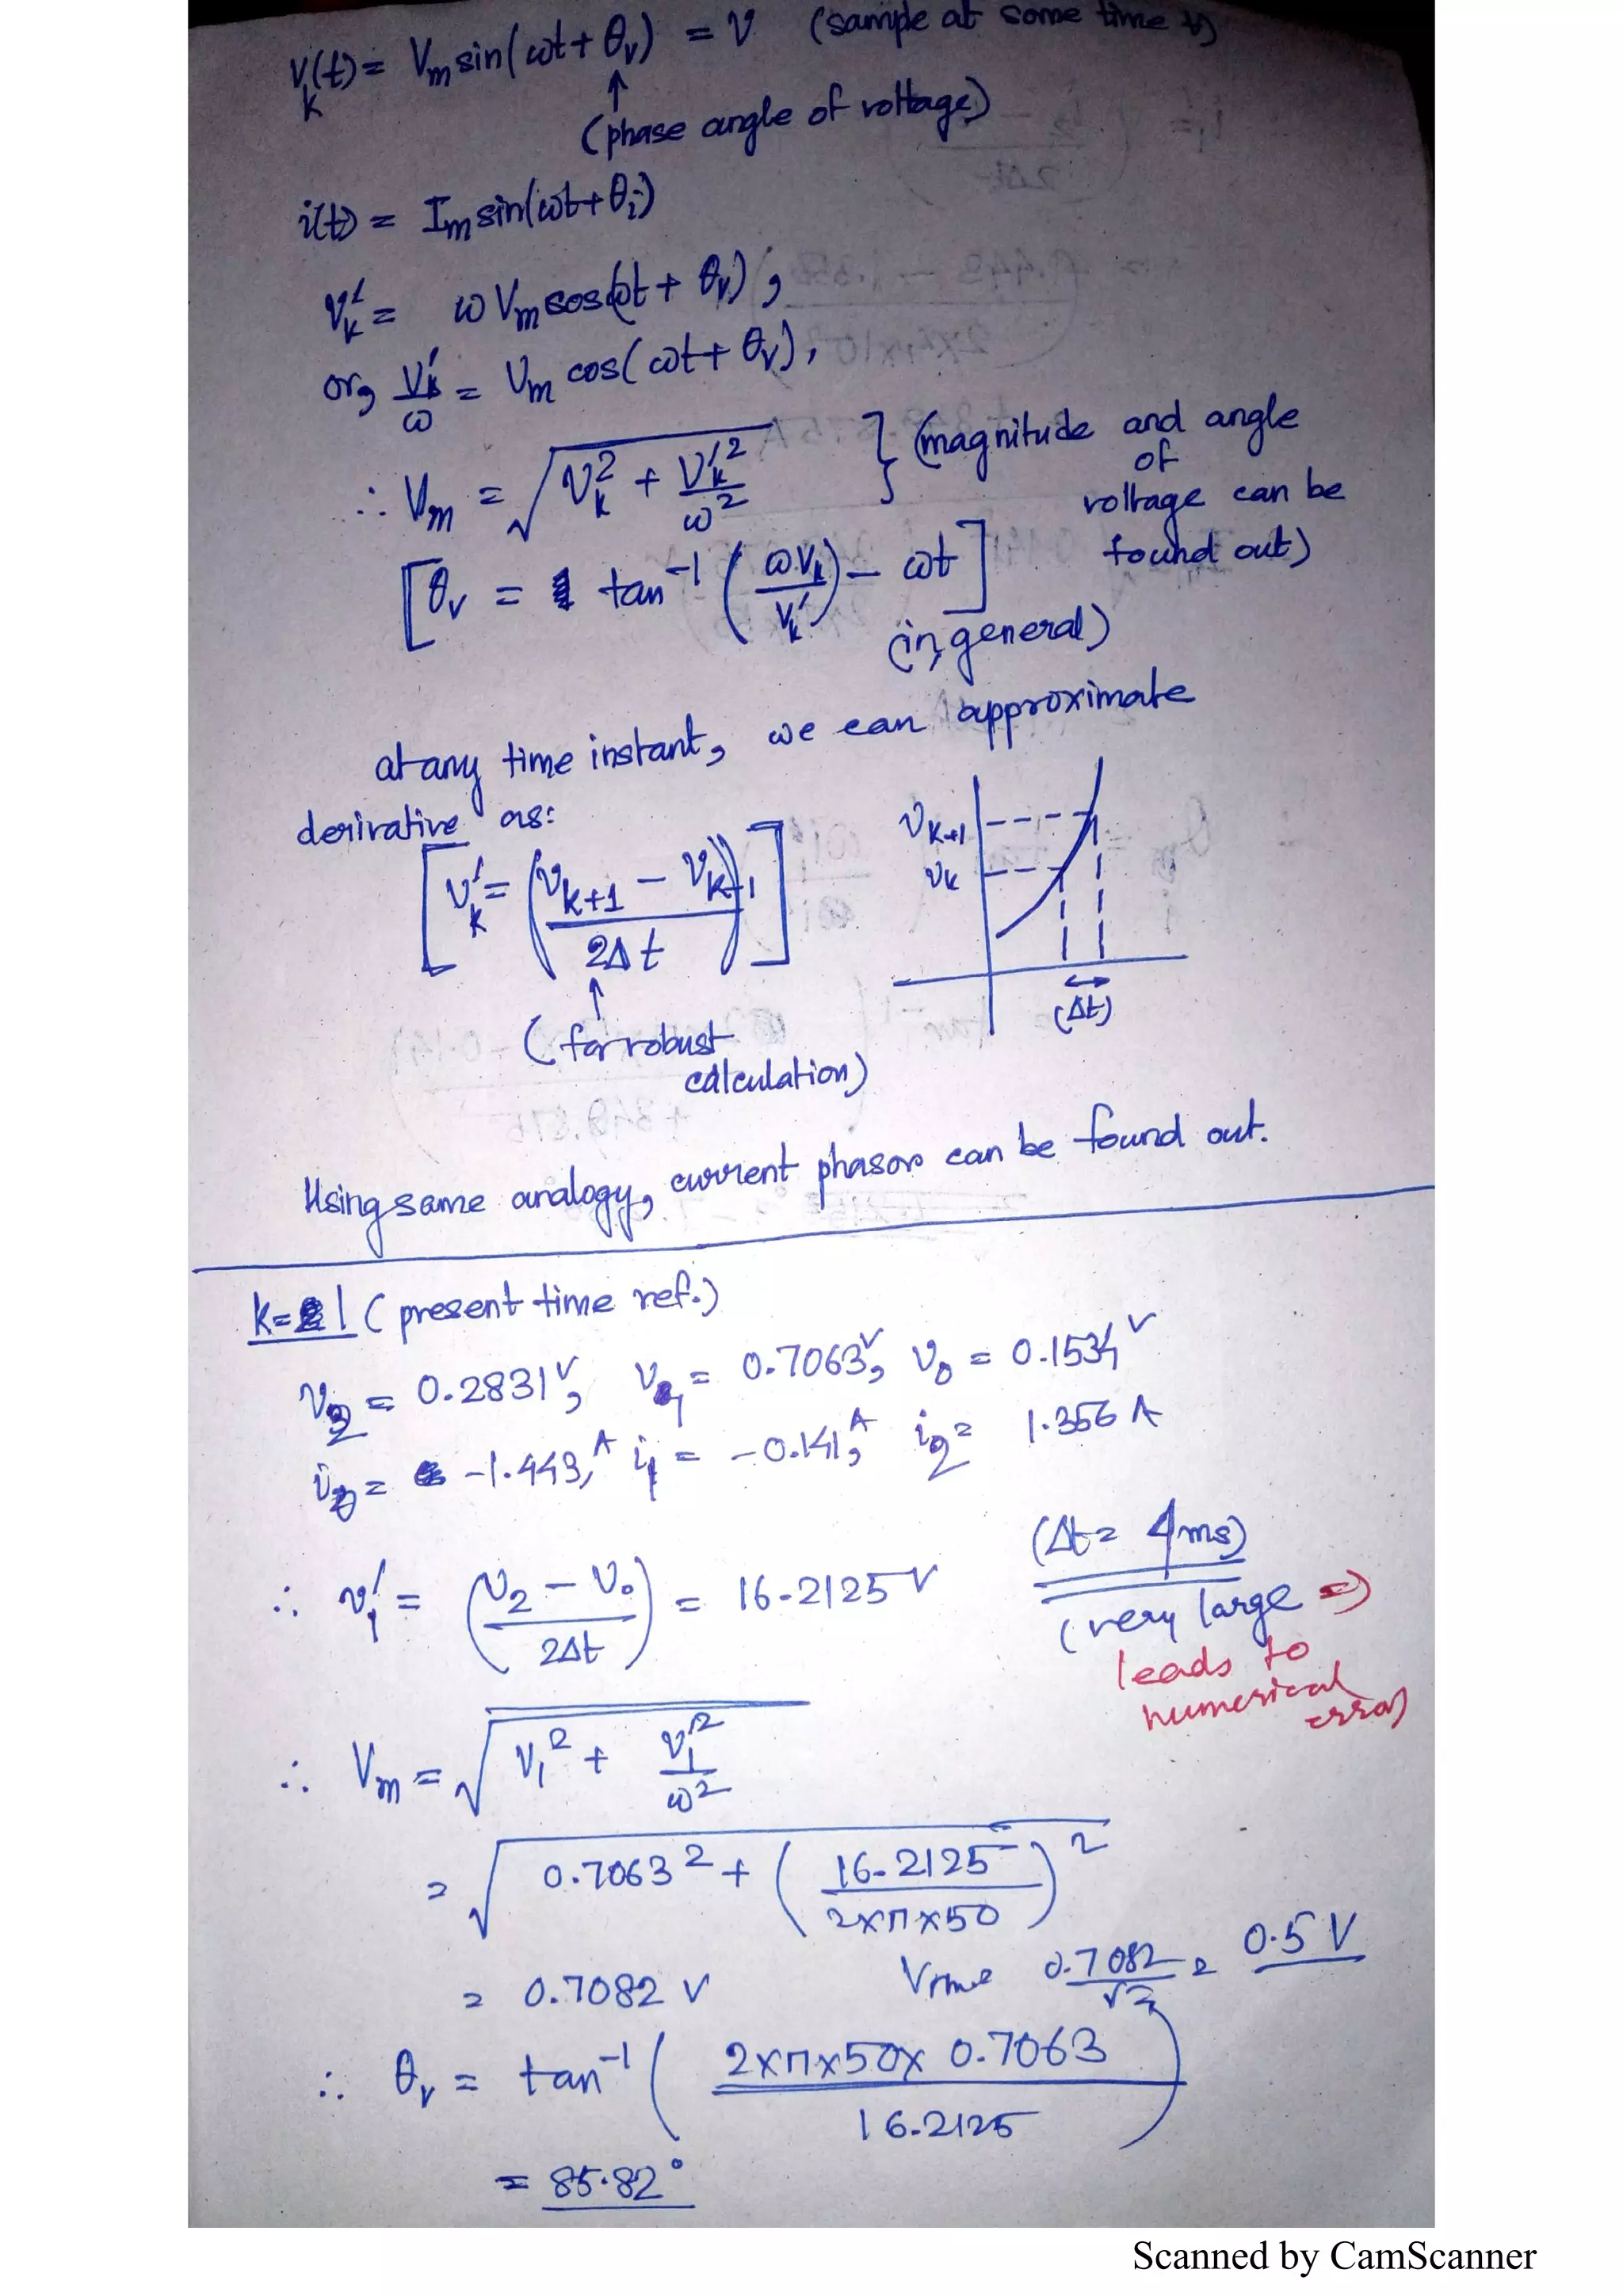 V_k(t) = V_m sin(ωt + θ_v) = V (sample at some time t)
↑
(phase angle of voltage)
i(t) = I_m sin(ωt + θ_i)
V_k' = ω V_m cos(ωt + θ_v),
or, V_k'/ω = V_m cos(ωt + θ_v),
∴ V_m = √(V_k² + V_k'²/ω²) } (magnitude and angle of voltage can be found out)
[θ_v = tan⁻¹(ωV_k/V_k') − ωt]
(in general)
at any time instant, we can approximate
derivative as:
[v_k' = ((v_{k+1} − v_{k-1})/2Δt)]
↑
(for robust
calculation)
v_{k+1}
v_k
(Δt)
Using same analogy, current phasors can be found out.
k=1 (present time ref.)
v_2 = 0.2831 V, v_1 = 0.7063 V, v_0 = 0.1534 V
i_0 = -1.443 A, i_1 = -0.141 A, i_2 = 1.356 A
(Δt = 4ms)
∴ v_1' = ((v_2 − v_0)/2Δt) = 16.2125 V
(very large ⇒)
leads to
numerical
error
∴ V_m = √(v_1² + v_1'²/ω²)
= √(0.7063² + (16.2125/(2×π×50))²)
= 0.7082 V V_rms = 0.7082/√2 = 0.5 V
∴ θ_v = tan⁻¹((2×π×50×0.7063)/16.2125)
= 85.82°
Scanned by CamScanner